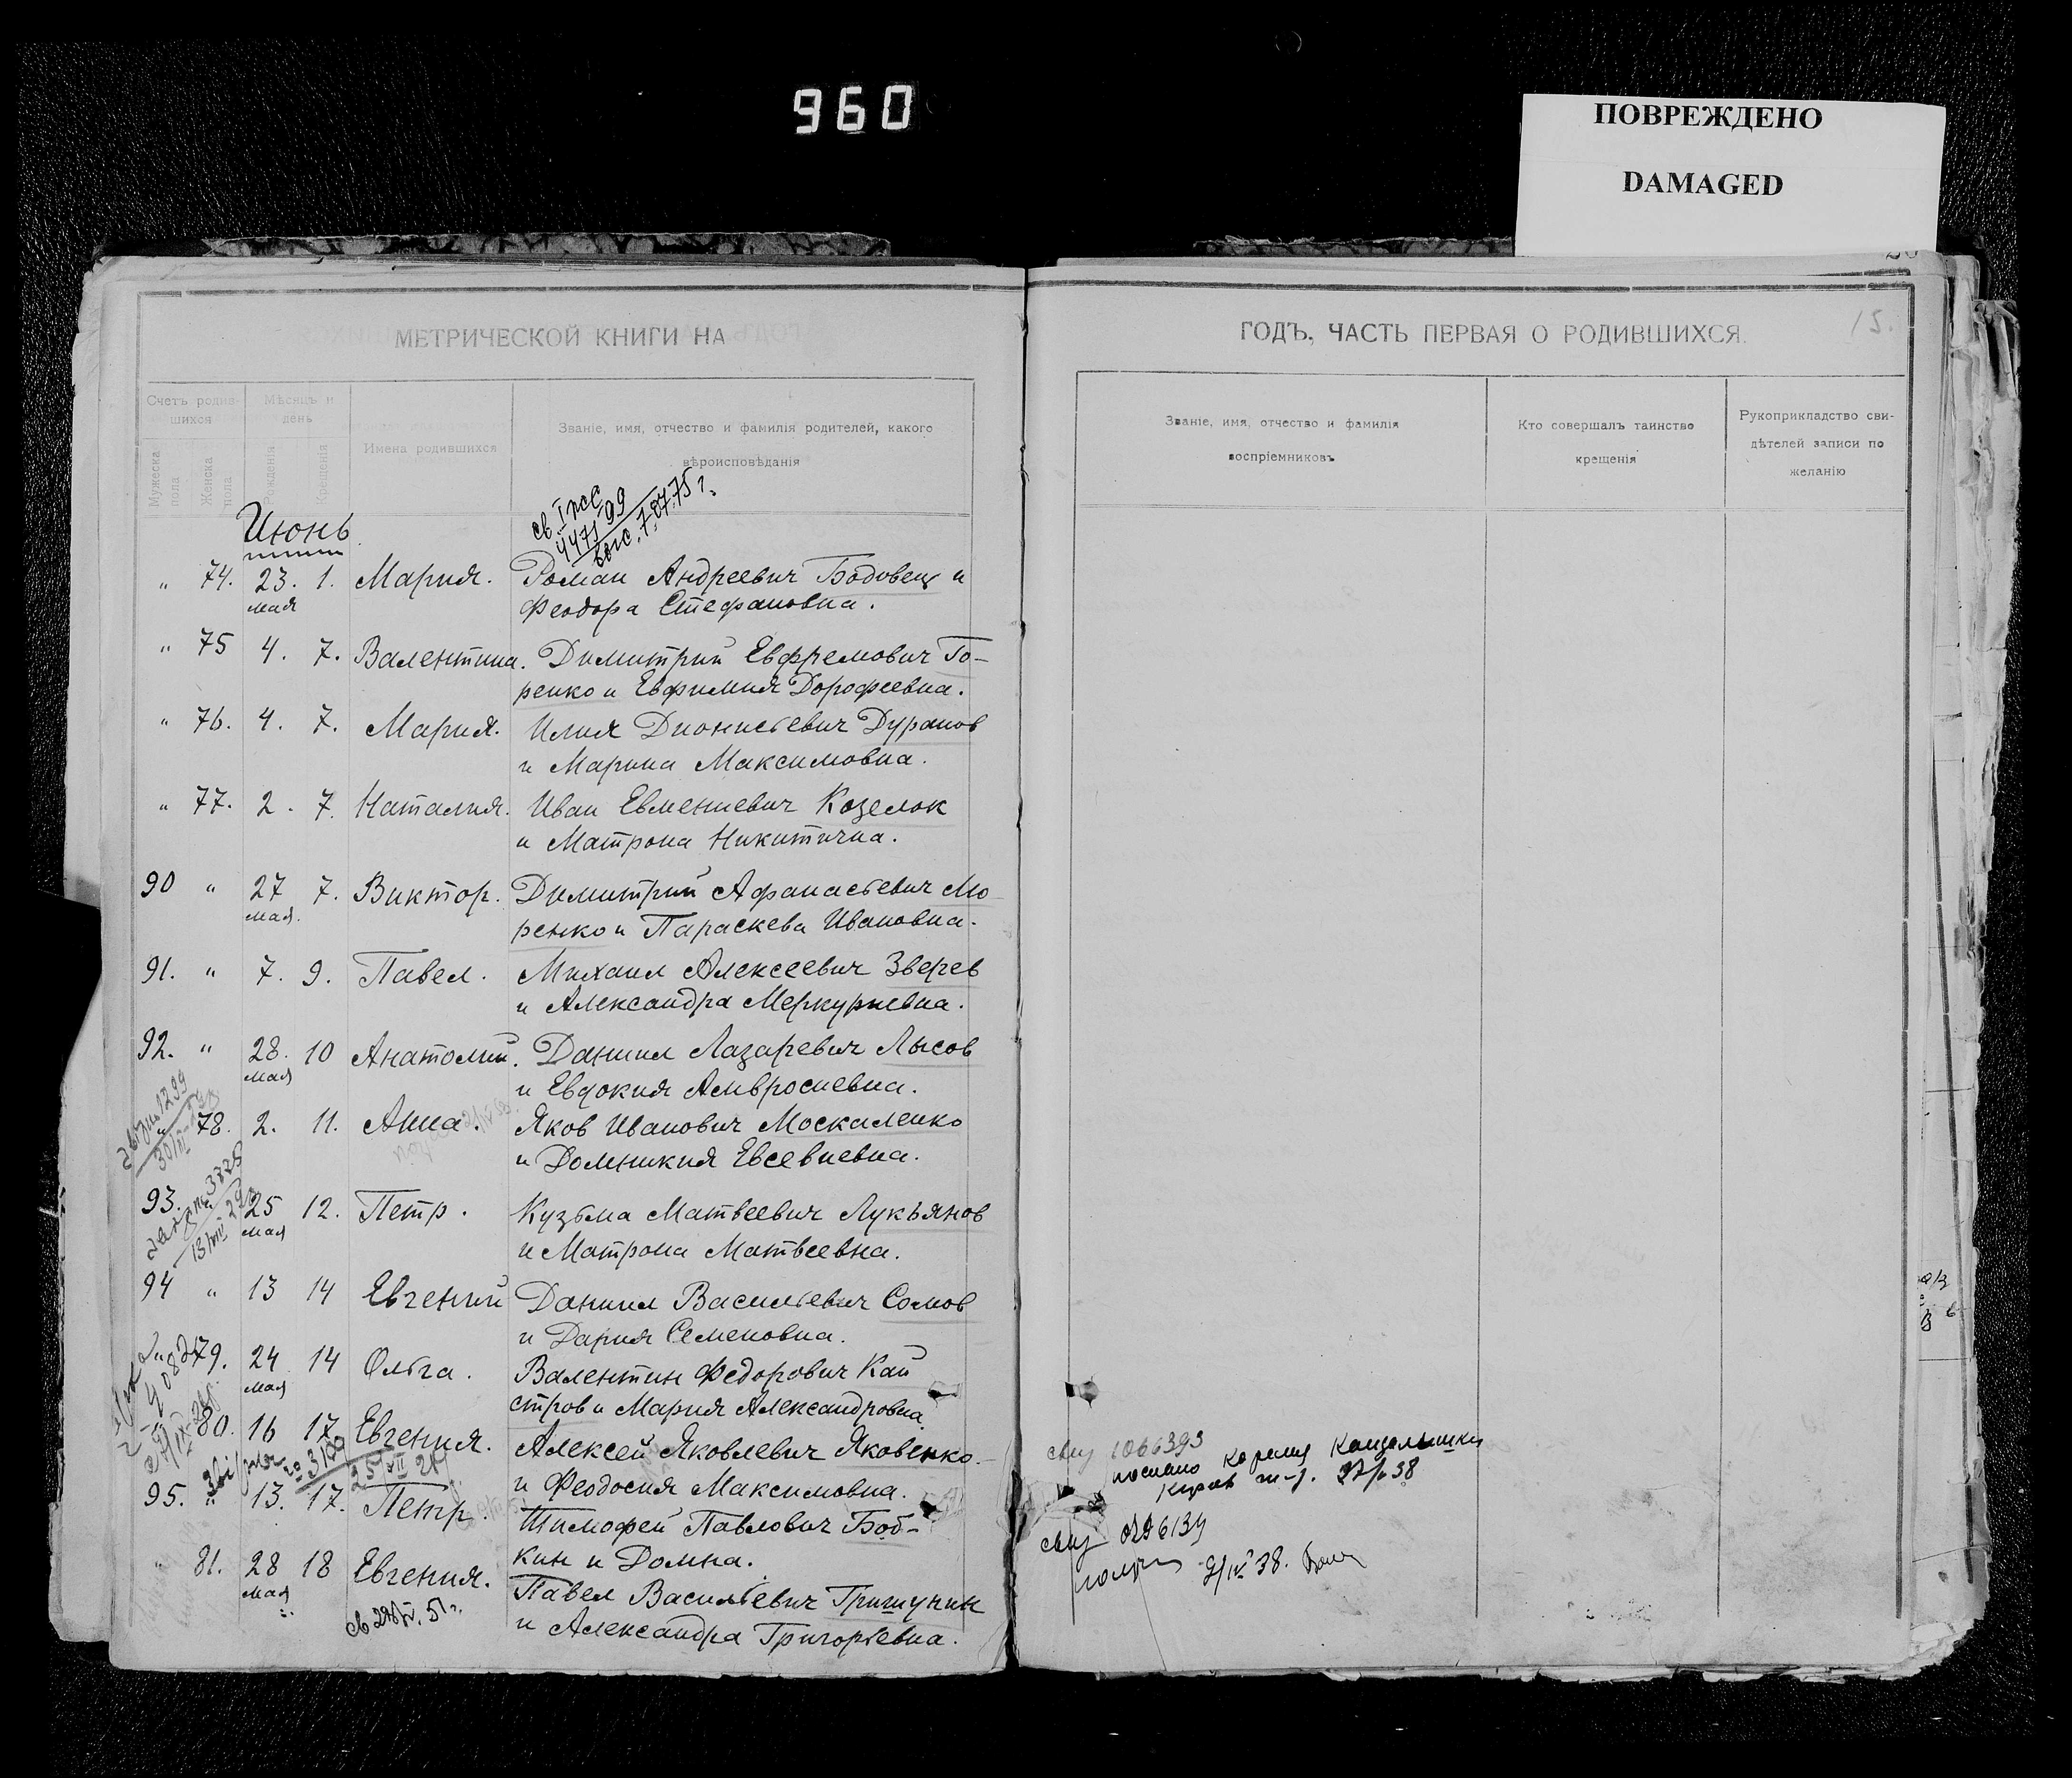 960
ПОВРЕЖДЕНО
DAMAGED
МЕТРИЧЕСКОЙ КНИГИ НА
Счетъ родив-
шихся
Мѣсяцъ и
день
Мужеска
пола
Женска
пола
Рожденія
Крещенія
Имена родившихся
Званіе, имя, отчество и фамилія родителей, какого
вѣроисповѣданія
Июнь
" 74. 23. 1. Мария. Роман Андреевич Бодовец и
мая Феодора Стефановна.
" 75 4. 7. Валентина. Димитрий Евфремович Го-
ренко и Евфимия Дорофеевна.
" 76. 4. 7. Мария. Илия Дионисьевич Дуранов
и Марина Максимовна.
" 77. 2. 7. Наталия. Иван Евмениевич Козелок
и Матрона Никитична.
90 " 27 7. Виктор. Димитрий Афанасьевич Мо-
мая. ренко и Параскева Ивановна.
91. " 7. 9. Павел. Михаил Алексеевич Зверев
и Александра Меркуриевна.
92. " 28. 10 Анатолий. Даниил Лазаревич Лысов
мая и Евдокия Амвросиевна.
" 78. 2. 11. Анна. Яков Иванович Москаленко
и Домникия Евсевиевна.
93. " 25 12. Петр. Кузьма Матвеевич Лукьянов
мая и Матрона Матвеевна.
94 " 13 14 Евгений Даниил Васильевич Сомов
и Дария Семеновна.
79. 24 14 Ольга. Валентин Федорович Кай
мая стров и Мария Александровна
80. 16 17. Евгения. Алексей Яковлевич Яковенко
и Феодосия Максимовна.
95. " 13. 17. Петр. Тимофей Павлович Боб-
кин и Домна.
" 81. 28 18 Евгения. Павел Васильевич Гришунин
мая и Александра Григорьевна.
ГОДЪ, ЧАСТЬ ПЕРВАЯ О РОДИВШИХСЯ.
15.
Званіе, имя, отчество и фамилія
воспріемниковъ
Кто совершалъ таинство
крещенія
Рукоприкладство сви-
дѣтелей записи по
желанію
1066393
послано